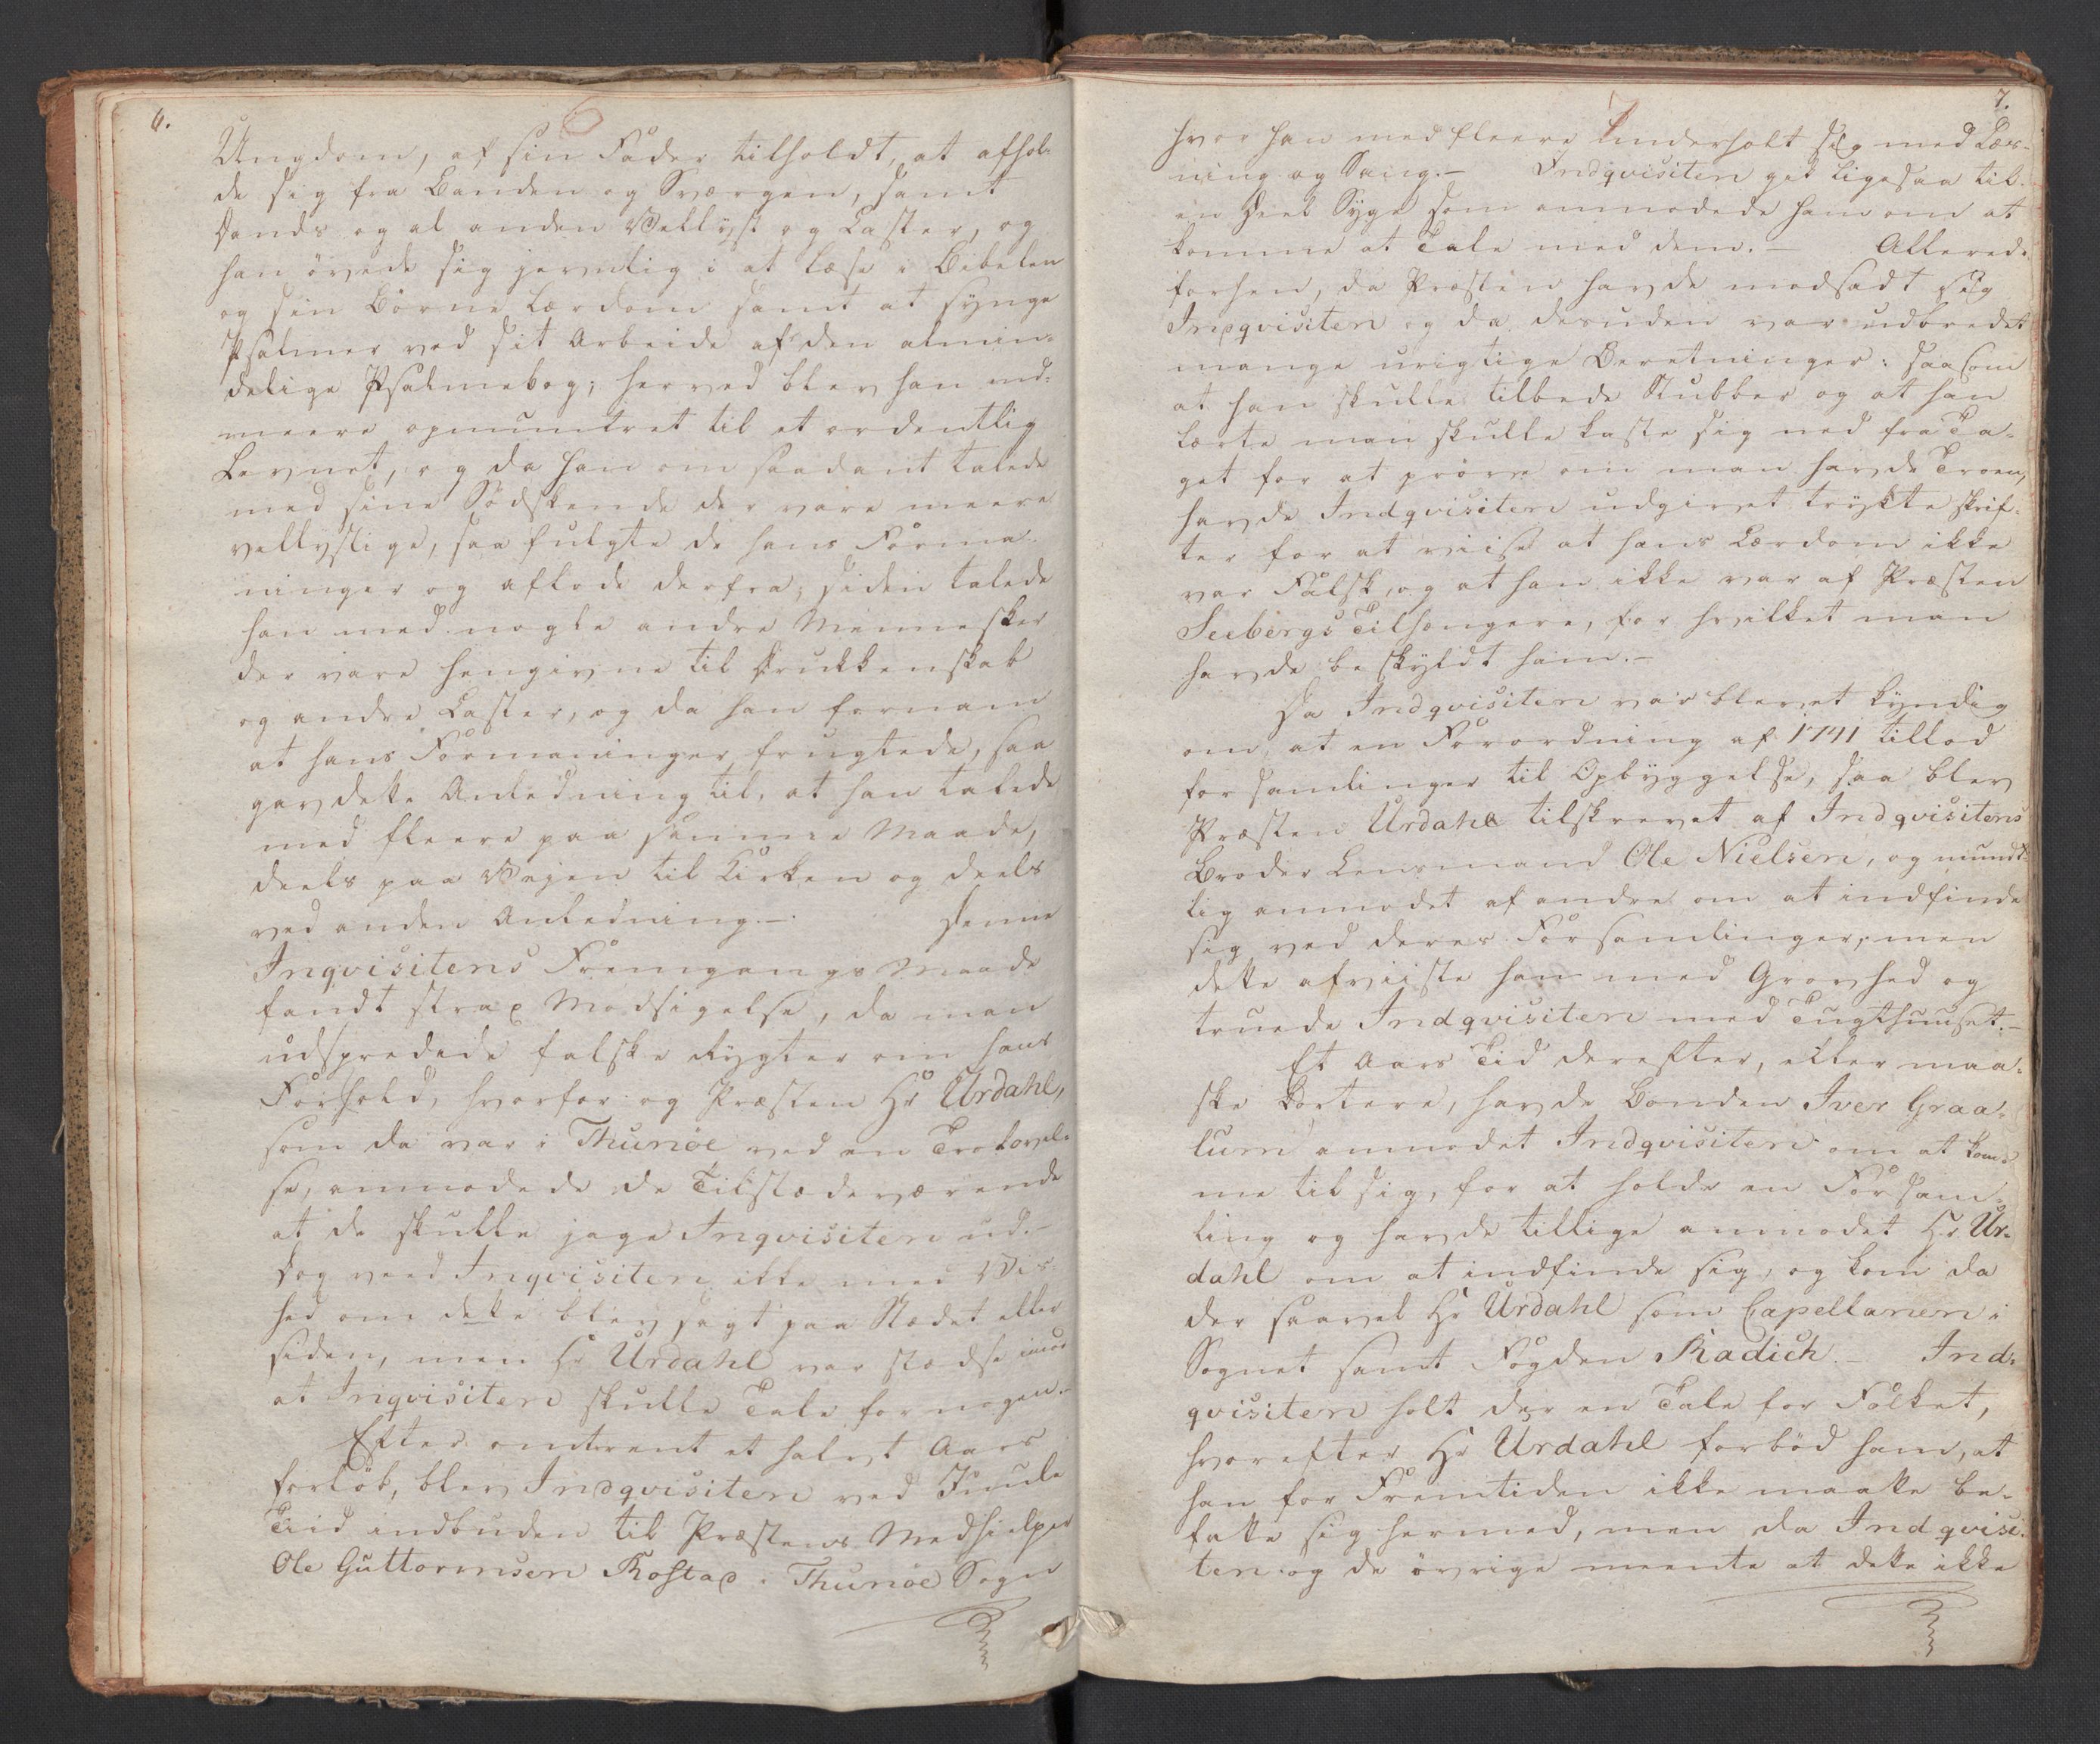 6.
6
Ungdom, af sin Fader tilholdt, at afhol-
de sig fra Banden og Sværgen, samt
Dands og al anden Vellyst og Laster, og
han övede sig jevnlig i at læse i Bibelen
og sin Börne Lærdom samt at synge
Psalmer ved sit Arbeide af den almin-
delige Psalmebog; herved blev han end-
meere opmuntret til et ordentlig
Levnet, og da han om saadant talede
med sine Södskende der vare meere
vellystige, saa fulgte de hans Forma-
ninger og aflode derfra; siden talede
han med nogle andre Mennesker
der vare hengivne til Drukkenskab
og andre Laster, og da han fornam
at hans Formaninger frugtede, saa
gav dette Anledning til, at han talede
med fleere paa samme Maade,
deels paa Vejen til Kirken og deels
ved anden Anledning.- Denne
Inqvisitens Fremgangs Maade
fandt strax Modsigelse, da man
udspredede falske Rygter om hans
Forhold, hvorfor og Præsten Hr Urdahl,
som da var i Thunöe ved en Trolovel-
se, anmodede de Tilstædeværende
at de skulle jage Inqvisiten ud.-
Dog veed Inqvisiten ikke med Vis-
hed om dette blev sagt paa Stædet eller
siden, men Hr Urdahl var stædse imod
at Inqvisiten skulle Tale for nogen.-
Efter omtrent et halvt Aars
forlöb, blev Indqvisiten ved Juule
Tiid indbuden til Præstens Medhielper
Ole Guttormsen Rostad i Thunöe Sogn
7.
7
hvor han med fleere underholt sig med Læs-
ning og Sang.- Indqvisiten gik ligesaa til
en Deel Syge som anmodede ham om at
komme at Tale med dem.- Allerede
forhen, da Præsten havde modsadt sig
Inqvisiten og da desuden var udbredet
mange urigtige Beretninger: saasom
at han skulle tilbede Stubber og at han
lærte man skulle kaste sig ned fra Ta-
get for at pröve om man havde Troen,
havde Indqvisiten udgivet trykte skrif-
ter for at viise at hans Lærdom ikke
var Falsk, og at han ikke var af Præsten
Seebergs Tilhængere, for hvilket man
havde beskyldt ham.-
Da Indqvisiten var blevet kyndig
om, at en Forordning af 1741 tillod
forsamlinger til Opbyggelse, saa blev
Præsten Urdahl tilskrevet af Indqvisitens
Broder Lensmand Ole Nielsen, og mundt-
lig anmodet af andre om at indfinde
sig ved deres Forsamlinger, men
dette afviiste han med Grovhed og
truede Indqvisiten med Tugthuuset.-
Et Aars Tid derefter, eller maa-
ske kortere, havde Bonden Iver Graa-
lum anmodet Indqvisiten om at kom-
me til sig, for at holde en Forsam-
ling og havde tillige anmodet Hr Ur-
dahl om at indfinde sig, og kom da
der saavel Hr Urdahl som Capellanen i
Sognet samt Fogden Radich.- Ind-
qvisiten holt der en Tale for Folket,
hvorefter Hr Urdahl forböd ham, at
han for Fremtiden ikke maatte be-
fatte sig hermed, men da Indqvisi-
ten og de övrige meente at dette ikke